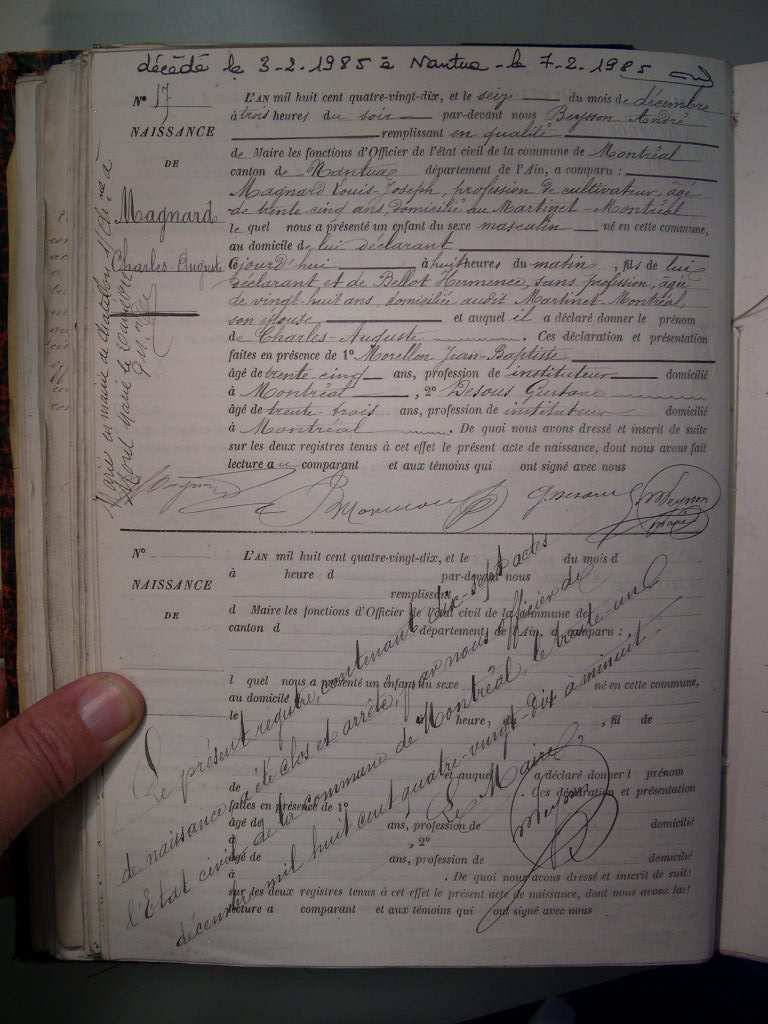 décédé le 3-2-1985 à Nantua - le 7-2-1985
N° 17
NAISSANCE
DE
Magnard
Charles-Auguste
L'AN mil huit cent quatre-vingt-dix, et le seize du mois de décembre
à trois heures du soir par-devant nous Buysson André
remplissant en qualité
de Maire les fonctions d'Officier de l'état civil de la commune de Montréal
canton de Nantua département de l'Ain, a comparu :
Magnard Louis-Joseph, profession de cultivateur, âgé
de trente cinq ans, domicilié au Martinet-Montréal
le quel nous a présenté un enfant du sexe masculin né en cette commune,
au domicile de lui déclarant
Cejourd'hui à huit heures du matin, fils de lui
déclarant et de Bellot Hermence, sans profession, âgée
de vingt-huit ans, domiciliée audit Martinet-Montréal,
son épouse et auquel il a déclaré donner le prénom
de Charles-Auguste. Ces déclaration et présentation
faites en présence de 1° Morellon Jean-Baptiste
âgé de trente cinq ans, profession de instituteur domicilié
à Montréal, 2° Desous Gustave
âgé de trente-trois ans, profession de instituteur domicilié
à Montréal. De quoi nous avons dressé et inscrit de suite
sur les deux registres tenus à cet effet le présent acte de naissance, dont nous avons fait
lecture au comparant et aux témoins qui ont signé avec nous
Marié en mairie de Chatillon
N°
NAISSANCE
DE
L'AN mil huit cent quatre-vingt-dix, et le du mois d
à heure d par-devant nous
remplissant
d Maire les fonctions d'Officier de l'état civil de la commune de
canton d département de l'Ain, a comparu :
l quel nous a présenté un enfant du sexe né en cette commune,
au domicile de
le à heure, fil de
de et auquel a déclaré donner l prénom
de . Ces déclaration et présentation
faites en présence de 1°
âgé de ans, profession de domicilié
à , 2°
âgé de ans, profession de domicilié
à . De quoi nous avons dressé et inscrit de suite
sur les deux registres tenus à cet effet le présent acte de naissance, dont nous avons fait
lecture a comparant et aux témoins qui ont signé avec nous
Le présent registre, contenant dix-sept actes
de naissance, a été clos et arrêté, par nous officier de
l'Etat civil de la commune de Montréal, le trente-un
décembre mil huit cent quatre-vingt-dix à minuit.
Le Maire,